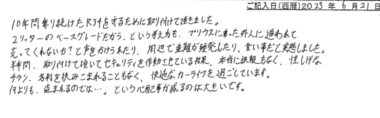 ご記入日(西暦) 2023年6月21日
10年間乗り続けたR34を守るために取り付けて頂きました。
2リッターのベースグレードだから、という考え方も、プリウスに乗った外人に追われて
売ってくれないか?と声をかけられたり、周辺で盗難が頻発したり、甘い事だと実感しました。
半年間、取り付けて頂いてセキュリティを作動させている結果、本当に故障もなく、怪しげな
チラシ、名刺を挟みこまれることもなく、快適なカーライフを過ごしています。
何よりも、盗まれるのでは…。という心配事が減るのは大きいです。